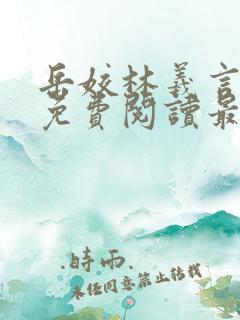 岳姣林義言
免費閱讀最
.時雨.
未经同意禁止转载